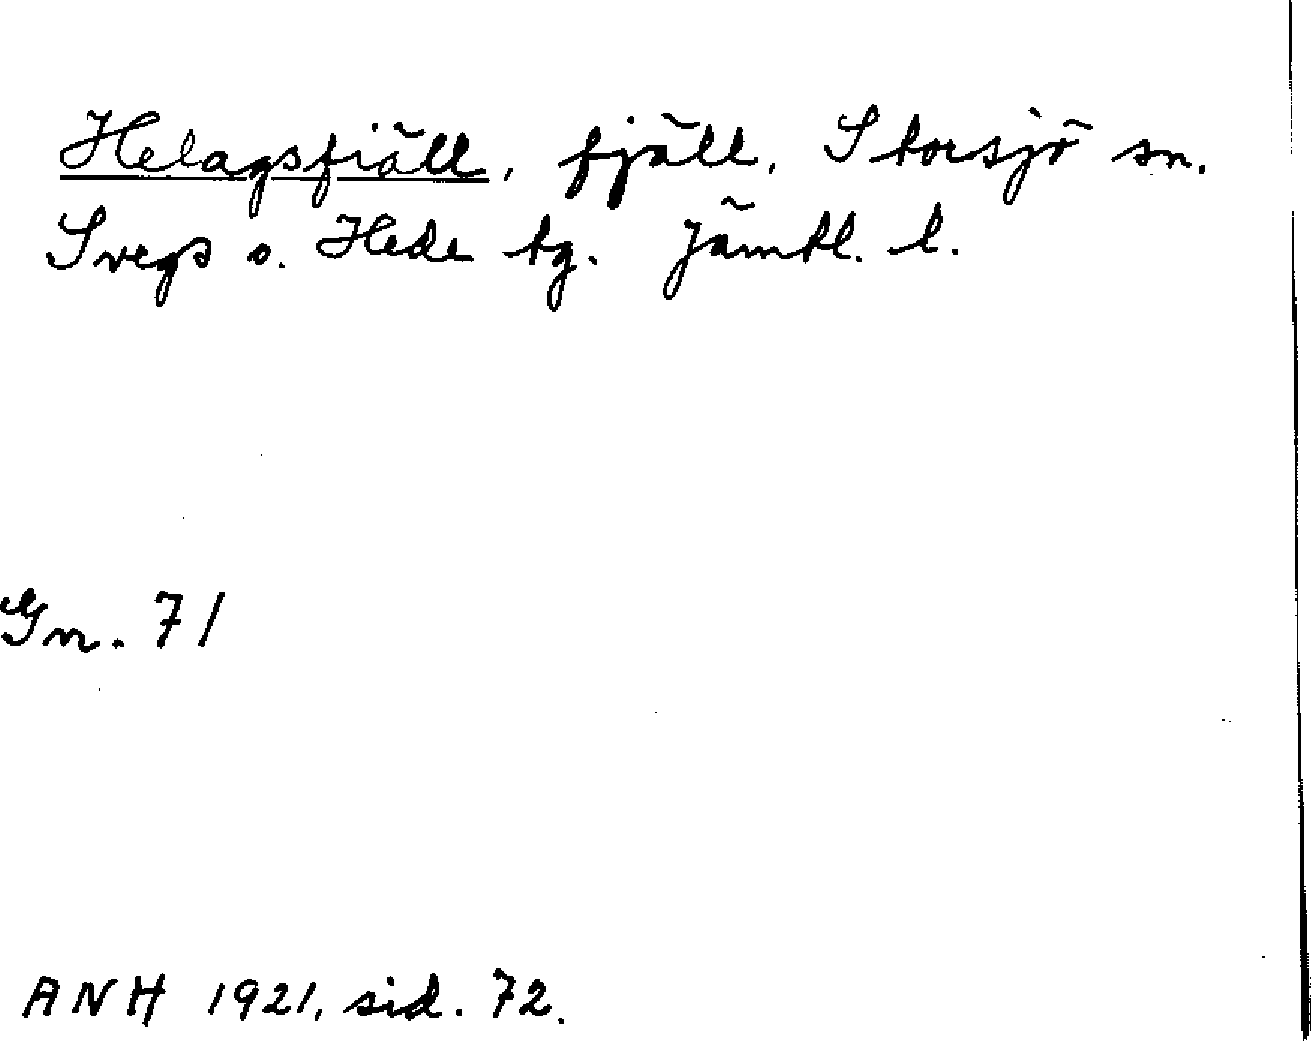 Helagsfiäll, fjäll, Storsjö sn.
Svegs o. Hede tg. Jämtl. l.
Gn. 71
ANH 1921, sid. 72.